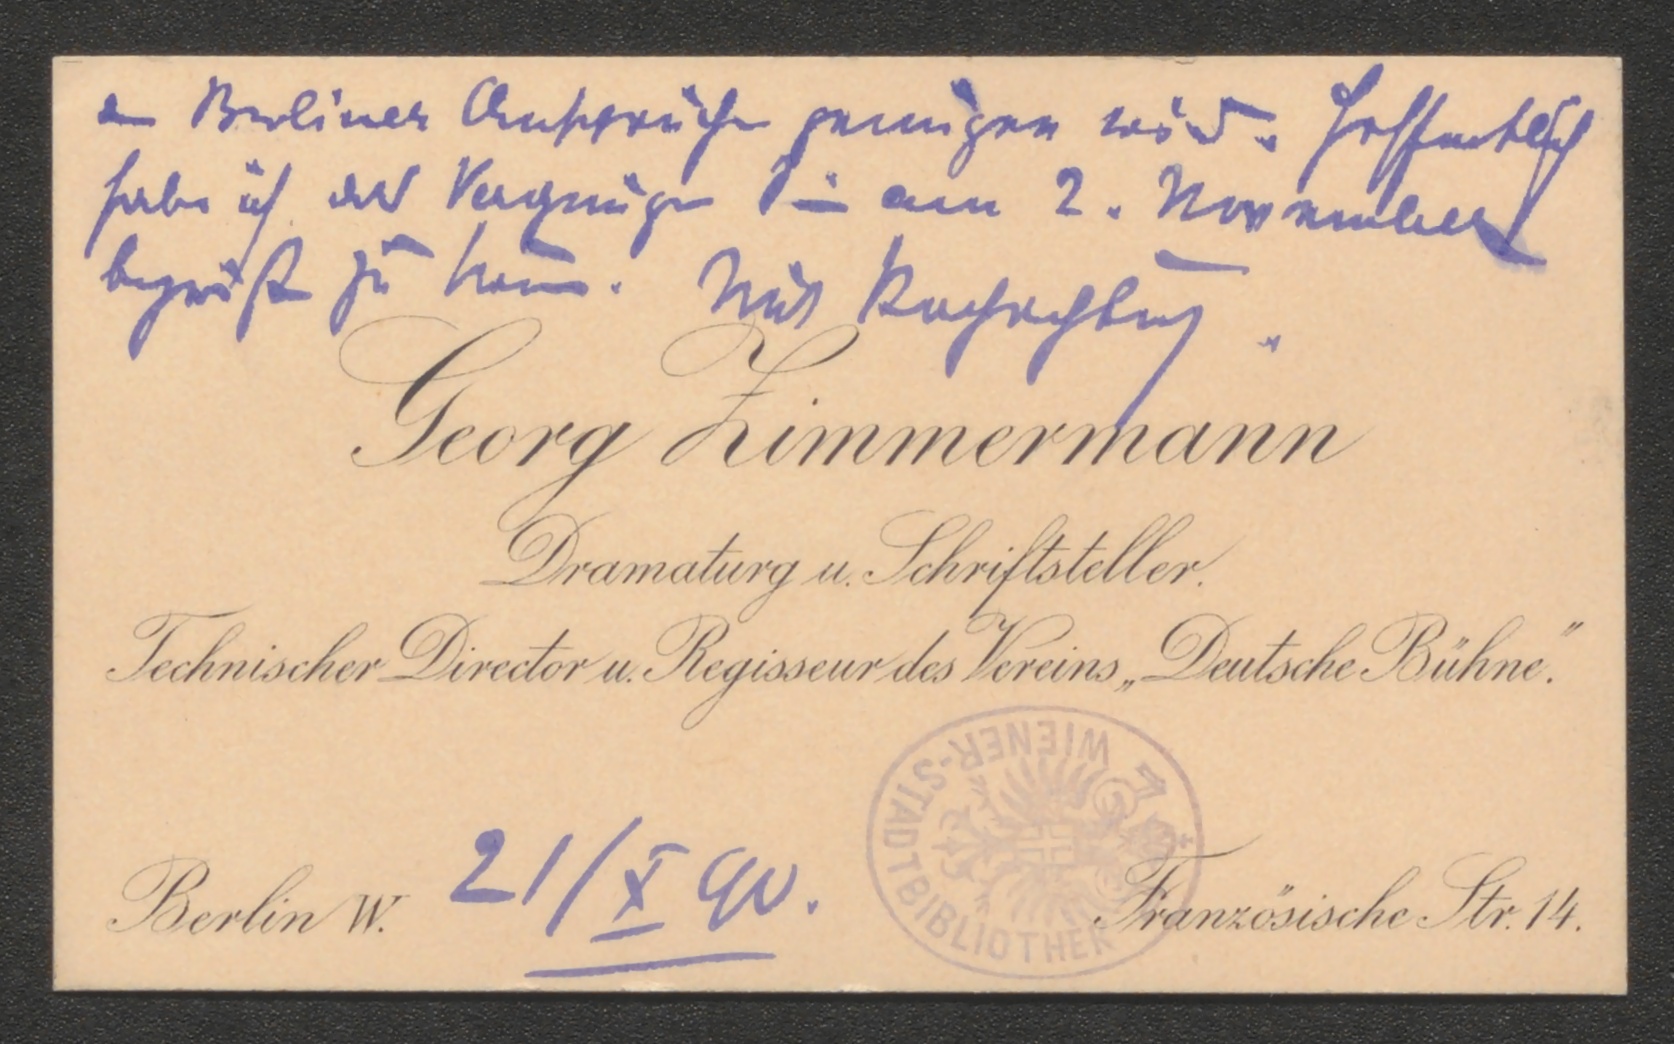 den Berliner Ansprüchen genügen wird. Hoffentlich
habe ich das Vergnügen Sie am 2. November
begrüßen zu können. Mit Hochachtung
Georg Zimmermann
Dramaturg u. Schriftsteller.
Technischer Director u. Regisseur des Vereins „Deutsche Bühne“.
WIENER-STADTBIBLIOTHEK
Berlin W. 21/X 90. Französische Str. 14.